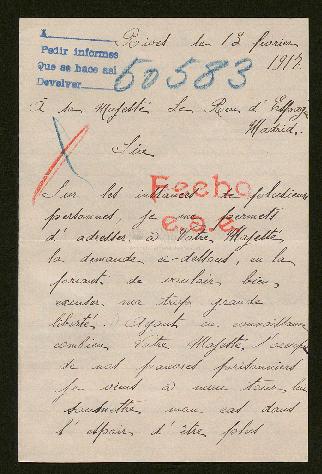 A
Pedir informes
Que se hace asi
Devolver
50583
Rives le 13 février
1917.
A sa Majesté Le Roi d'Espagne
Madrid.
Sire
Fecho
Sur les instances de plusieurs
personnes, je me permets
d'adresser à Votre Majesté
la demande ci-dessous, en la
priant de vouloir bien
excuser ma trop grande
liberté. Ayant eu connaissance
combien Votre Majesté s'occupe
de nos pauvres prisonniers
je viens à mon tour lui
soumettre mon cas dans
l'espoir d'être plus